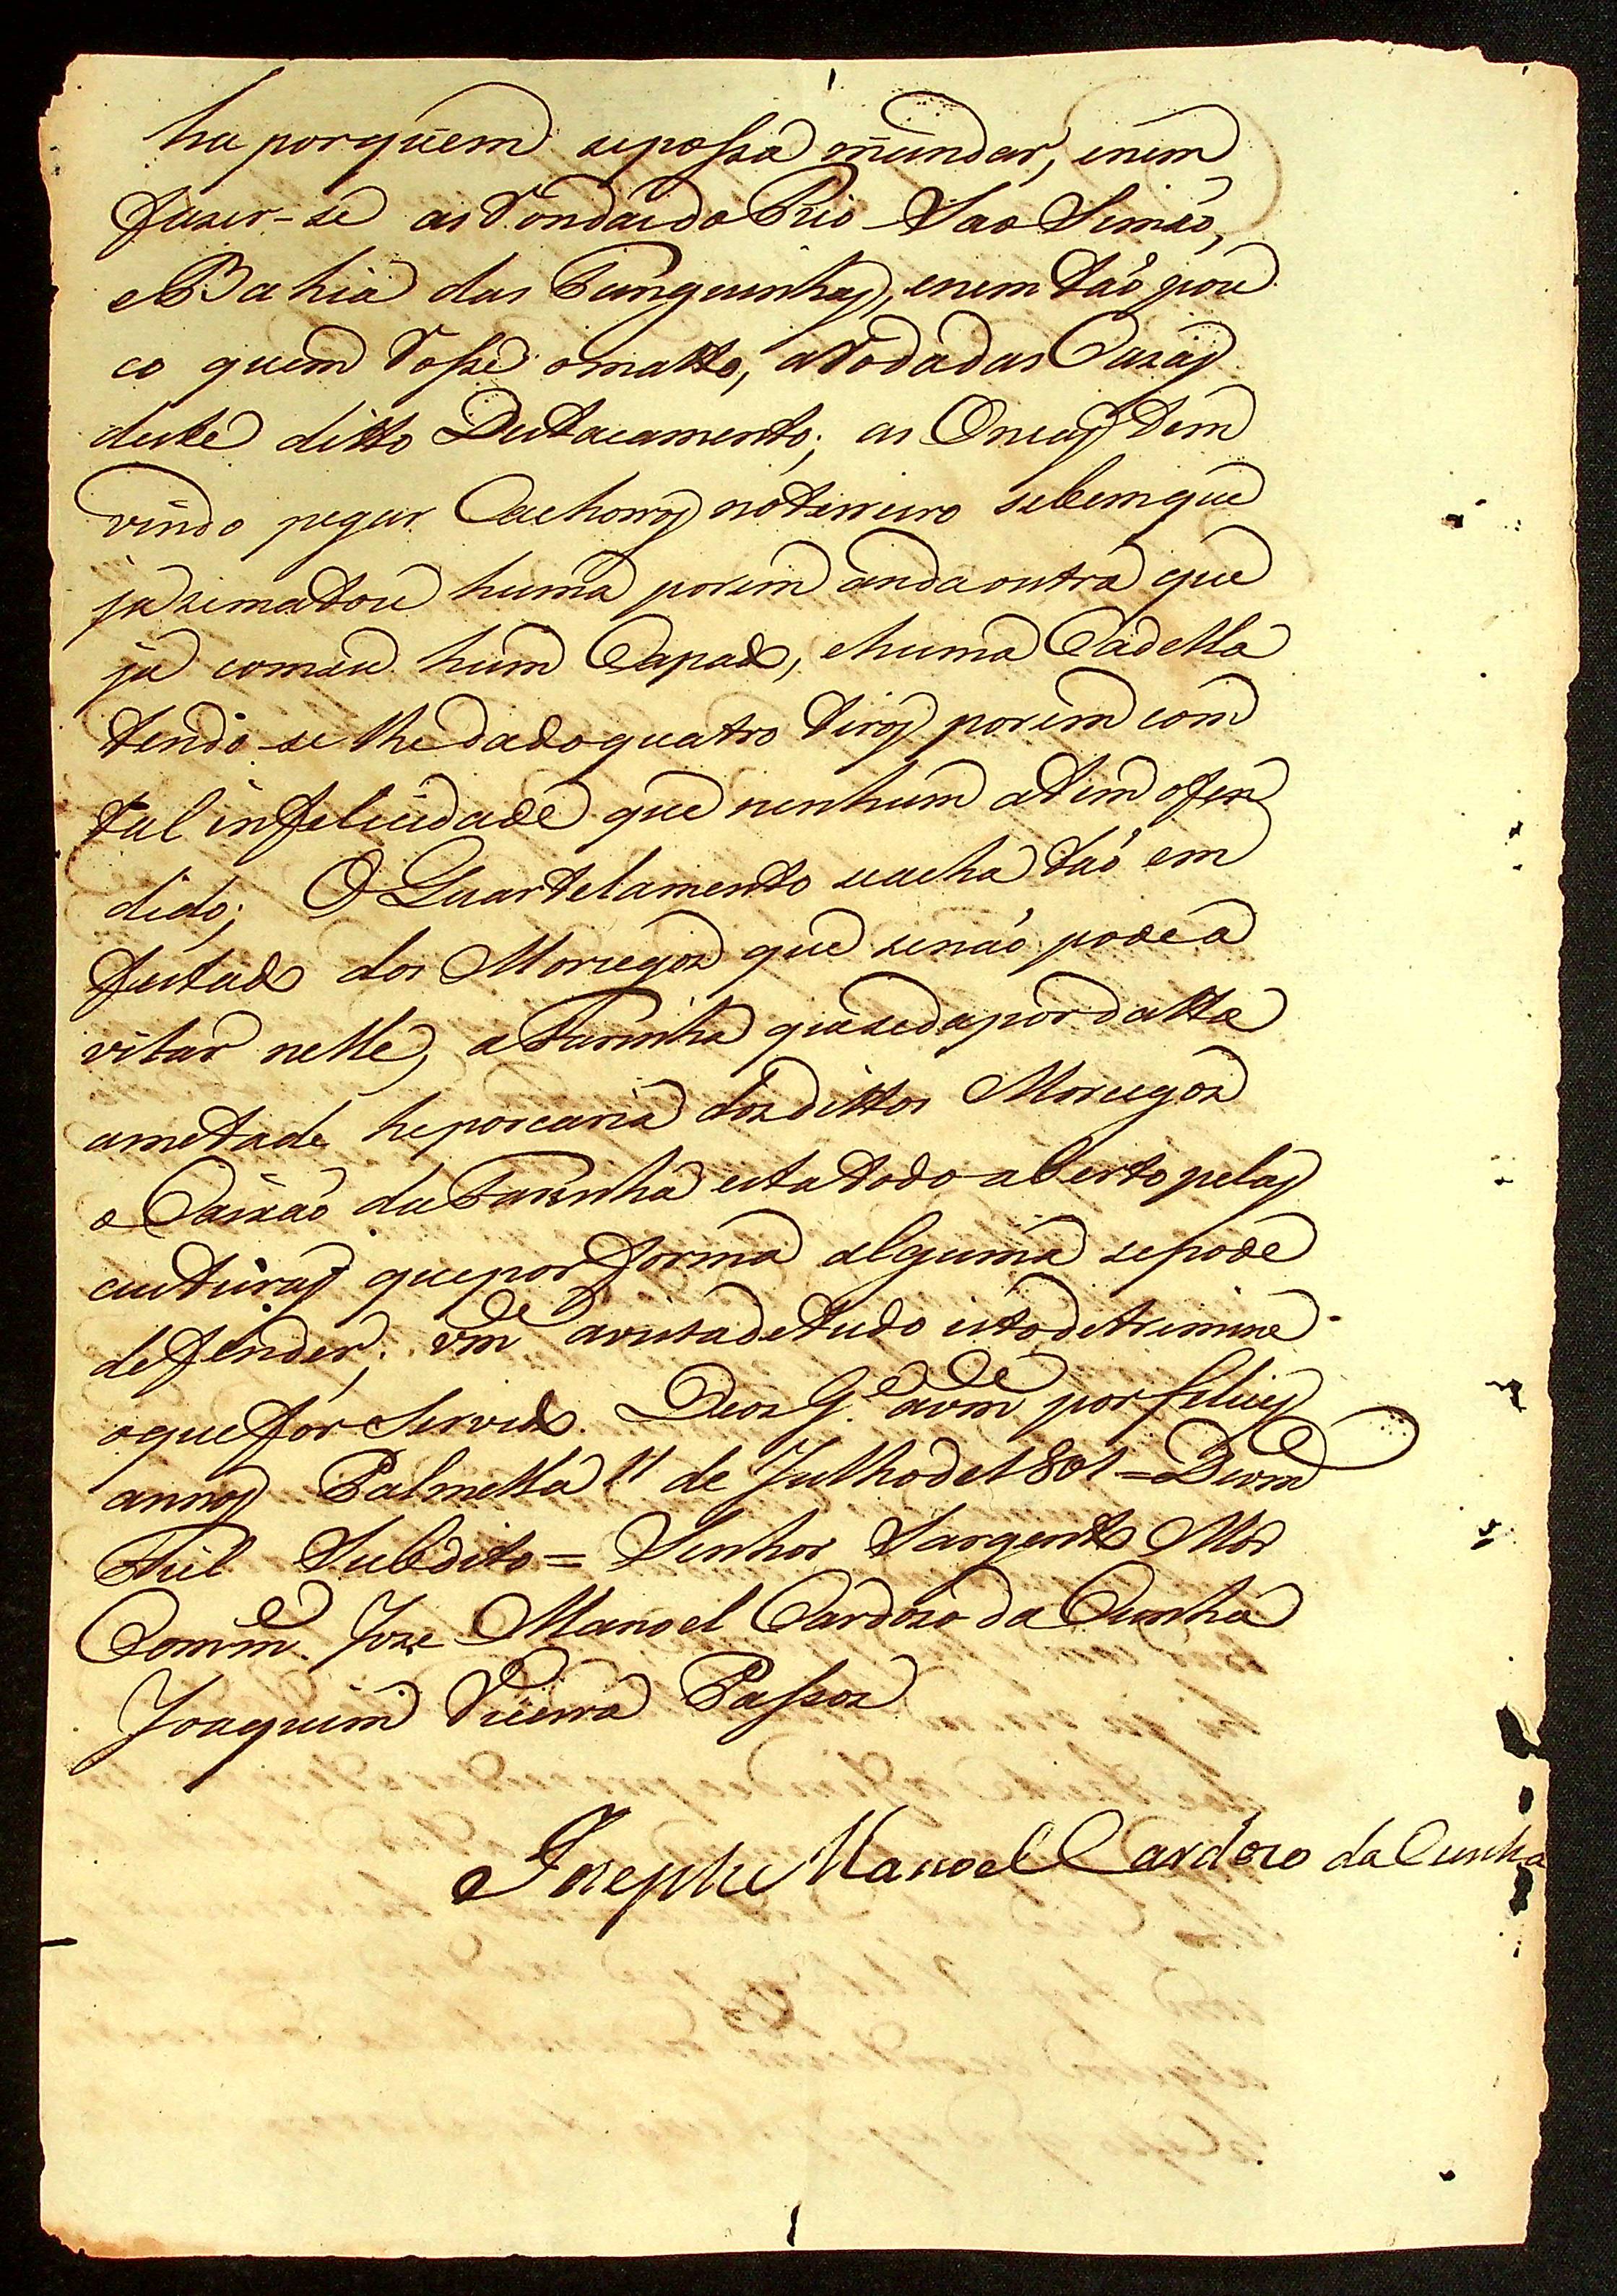 ha porquem sepossa mandar, enem
fazer-se as Rondas do Rio Sao Simão,
e Bahia das Tanguinhas, enem tão pou
co quem Rosse o matto, a Roda das Cazas
deste ditto Destacamento; as Oncas tem
vindo pegar Cachorros no terreiro sebem que
ja se matou huma porem anda outra que
ja comeu hum Capado, e huma Cadella
tendo-se lhe dado quatro tiros porem com
tal infelicidade que nenhum a tem ofen
dido; O Quartelamento se acha tão em
festado dos Morcegos que se não pode a
vitar nelle, a Farinha que se da por datta
ametade he porcaria dos dittos Morcegos
o Caixão da Farinha esta todo aberto pelas
custuras que por forma alguma se pode
defender; Vm.ce avista de tudo isto detremine
o que for Servido. Deos G.e a Vm.ce por felices
annos Palmella 11 de Julho de 1801 = De Vm.ce
Fiel Subdito = Senhor Sargento Mor
Comm.e Joze Manoel Cardozo da Cunha
Joaquim Vieira Passos
Joseph Manoel Cardozo da Cunha